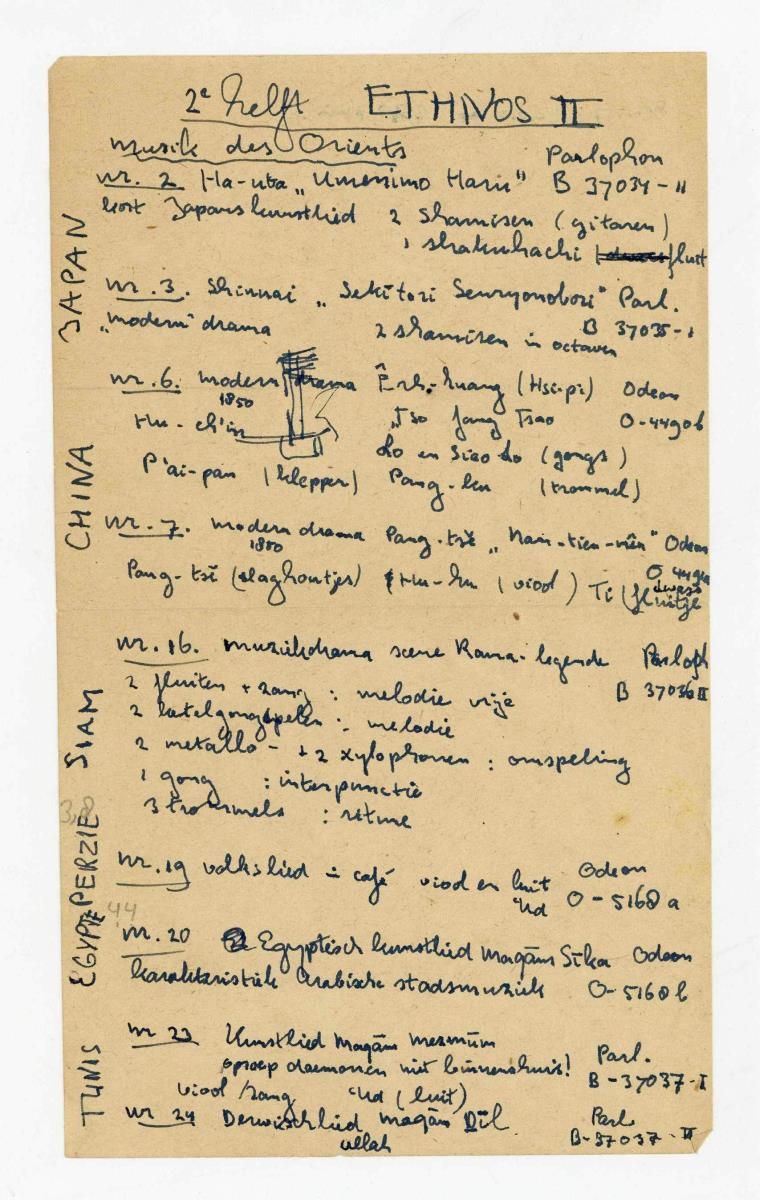 2e helft ETHNOS II
Musik des Orients Parlophon
nr. 2 Ha-uta „Umenimo Haru" B 37034-II
kort Japans kunstlied 2 Shamisen (gitaren)
1 shakuhachi fluit
JAPAN
nr. 3. Shinnai „Sekitori Senryonobori" Parl.
„modern" drama 2 shamisen in octaven B 37035-I
nr. 6. modern drama Êrh-huang (Hsi-pi) Odeon
1850
Hu-ch'in „Tso Jang Tsao O-4490b
Lo en Siao Lo (gongs)
P'ai-pan (klepper) Pang-ku (trommel)
CHINA
nr. 7. modern drama Pang-tsĕ „Nan-tien-mên" Odeon
1850
Pang-tsĕ (slaghoutjes) Hu-hu (viool) Ti (dwars
fluitje
nr. 16. muziekdrama scene Rama-legende Parloph
2 fluiten + zang : melodie vrije B 37036 II
2 ketelgongspelen : melodie
2 metallo- + 2 xylophonen : omspeling
1 gong : interpunctie
3 trommels : ritme
SIAM
3,8
PERZIE
nr. 19 volkslied in café viool en luit Odeon
'Ud O-5168a
EGYPTE
44
nr. 20 Egyptisch kunstlied Maqām Sīka Odeon
karakteristiek Arabische stadsmuziek O-5168b
nr 23 Kunstlied Maqām Mezmūm
oproep daemonen niet binnenshuis! Parl.
B-37037-I
viool/zang 'Ud (luit)
TUNIS
nr 24 Derwischlied Maqām Dīl Parl.
ullah B-37037-II